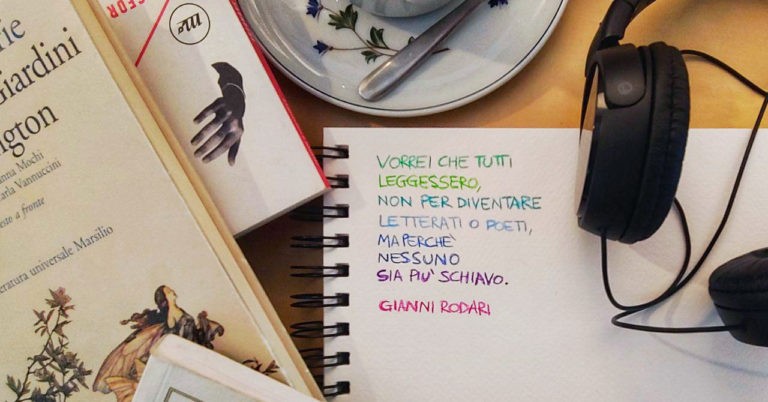 Giardini
anna Mochi
arla Vannuccini
esto a fronte
eratura universale Marsilio
VORREI CHE TUTTI
LEGGESSERO,
NON PER DIVENTARE
LETTERATI O POETI,
MA PERCHÈ
NESSUNO
SIA PIÙ SCHIAVO.
GIANNI RODARI